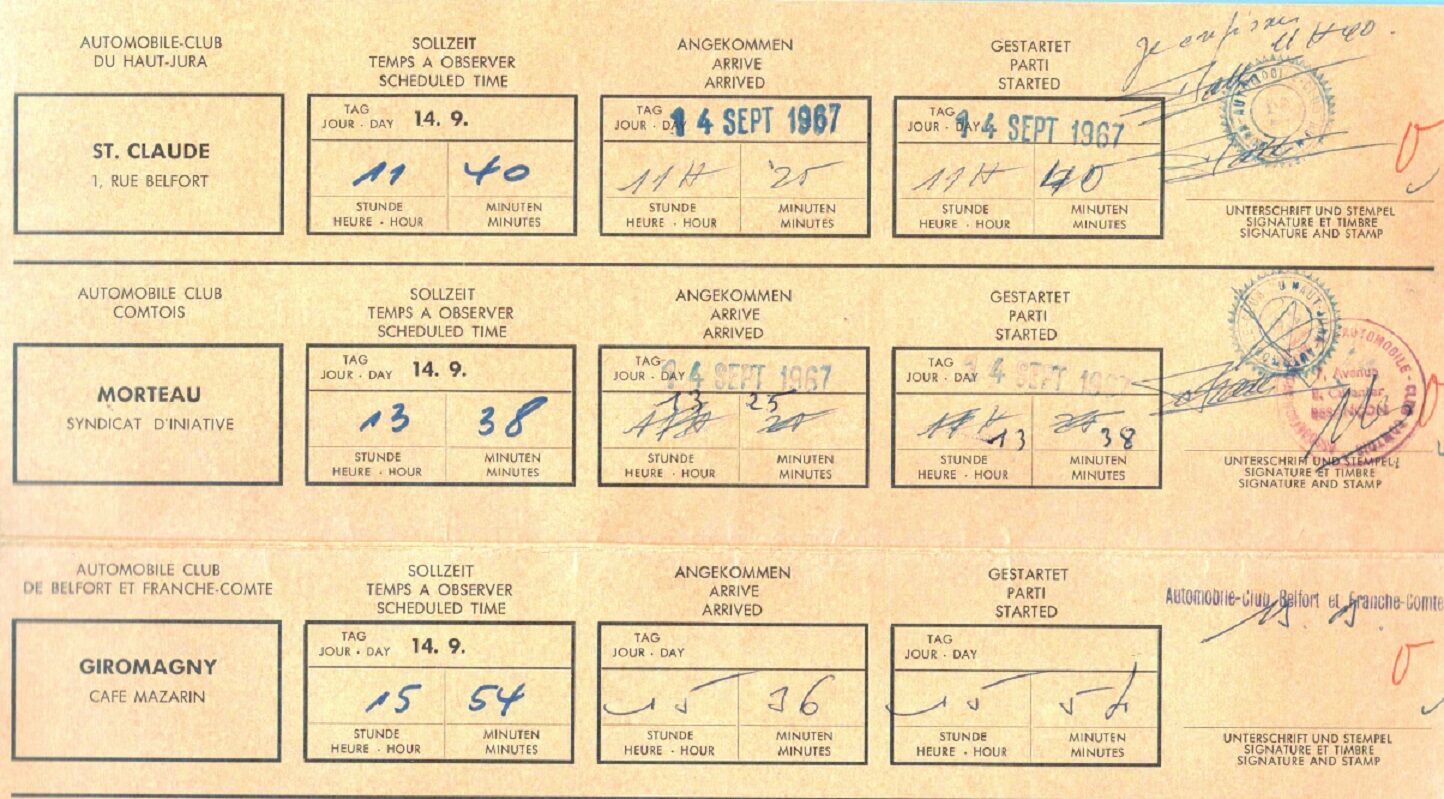 AUTOMOBILE-CLUB
DU HAUT-JURA
ST. CLAUDE
1, RUE BELFORT
SOLLZEIT
TEMPS A OBSERVER
SCHEDULED TIME
TAG
JOUR · DAY 14. 9.
11 40
STUNDE MINUTEN
HEURE · HOUR MINUTES
ANGEKOMMEN
ARRIVE
ARRIVED
TAG
JOUR · DAY 14 SEPT 1967
11H 25
STUNDE MINUTEN
HEURE · HOUR MINUTES
GESTARTET
PARTI
STARTED
TAG
JOUR · DAY 14 SEPT 1967
11H 40
STUNDE MINUTEN
HEURE · HOUR MINUTES
11 H 40.
UNTERSCHRIFT UND STEMPEL
SIGNATURE ET TIMBRE
SIGNATURE AND STAMP
AUTOMOBILE CLUB
COMTOIS
MORTEAU
SYNDICAT D'INIATIVE
SOLLZEIT
TEMPS A OBSERVER
SCHEDULED TIME
TAG
JOUR · DAY 14. 9.
13 38
STUNDE MINUTEN
HEURE · HOUR MINUTES
ANGEKOMMEN
ARRIVE
ARRIVED
TAG
JOUR · DAY 14 SEPT 1967
13 25
STUNDE MINUTEN
HEURE · HOUR MINUTES
GESTARTET
PARTI
STARTED
TAG
JOUR · DAY 14 SEPT 1967
13 38
STUNDE MINUTEN
HEURE · HOUR MINUTES
AUTOMOBILE-CLUB COMTOIS
7, Avenue
BESANÇON
UNTERSCHRIFT UND STEMPEL
SIGNATURE ET TIMBRE
SIGNATURE AND STAMP
AUTOMOBILE CLUB
DE BELFORT ET FRANCHE-COMTE
GIROMAGNY
CAFE MAZARIN
SOLLZEIT
TEMPS A OBSERVER
SCHEDULED TIME
TAG
JOUR · DAY 14. 9.
15 54
STUNDE MINUTEN
HEURE · HOUR MINUTES
ANGEKOMMEN
ARRIVE
ARRIVED
TAG
JOUR · DAY
15 36
STUNDE MINUTEN
HEURE · HOUR MINUTES
GESTARTET
PARTI
STARTED
TAG
JOUR · DAY
15 54
STUNDE MINUTEN
HEURE · HOUR MINUTES
Automobile-Club Belfort et Franche-Comté
UNTERSCHRIFT UND STEMPEL
SIGNATURE ET TIMBRE
SIGNATURE AND STAMP